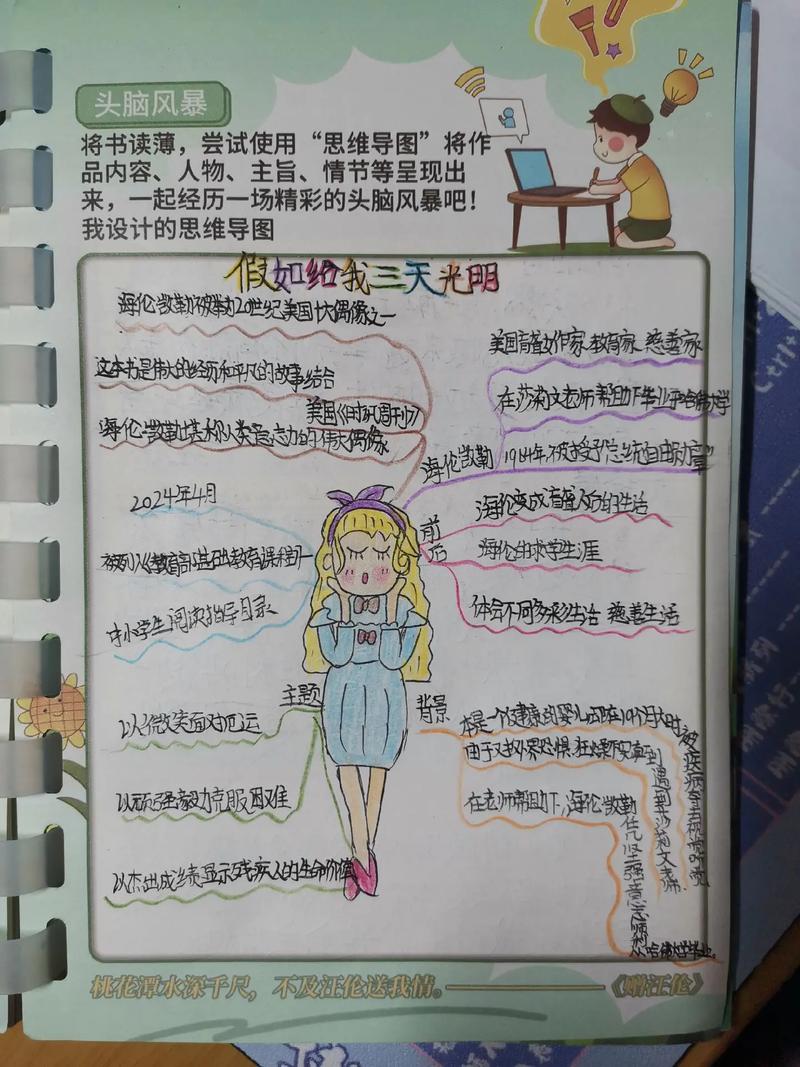 头脑风暴
将书读薄，尝试使用“思维导图”将作
品内容、人物、主旨、情节等呈现出
来，一起经历一场精彩的头脑风暴吧！
我设计的思维导图
假如给我三天光明
海伦凯勒被举为20世纪美国十大偶像之一
这本书是伟大的经历和平凡的故事结合
美国《时代周刊》
海伦凯勒堪称人类意志力的伟大偶像
2024年4月
被列入《教育部基础教育课程
中小学生阅读指导目录
主题
以微笑面对厄运
以顽强毅力克服困难
以杰出成绩显示残疾人的生命价值
海伦凯勒
美国盲聋作家 教育家 慈善家
在莎莉文老师帮助下毕业于哈佛大学
1964年被授予“总统自由勋章”
前后
海伦变成盲聋人后的生活
海伦的求学生涯
体会不同多彩生活 慈善生活
背景
本是一个健康的婴儿却在19个月大时被疾病夺去视觉听觉
由于对外界恐惧 狂燥不安直到遇到莎莉文老师
在老师帮助下,海伦凯勒凭坚强意志
从哈佛大学毕业。
桃花潭水深千尺，不及汪伦送我情。——《赠汪伦》